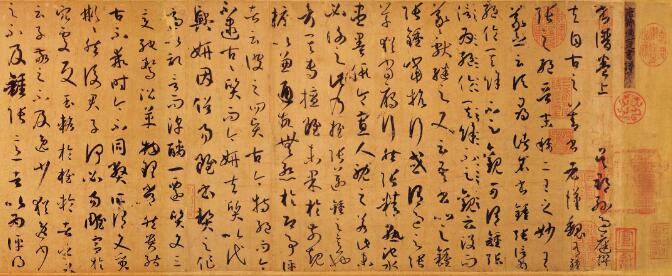 書譜卷上 吳郡孫過庭撰
夫自古之善書者漢魏有鍾
張之絶晉末稱二王之妙王
羲之云頃尋諸名書鍾張信
爲絶倫其餘不足觀可謂鍾張
云沒而
羲獻繼之又云吾書比之鍾
張鍾當抗行或謂過之張
草猶當鴈行然張精熟池水
盡墨假令寡人耽之若此未
必謝之此乃推張邁鍾之意也
考其專擅雖未果於前規
摭以兼通故無慚於即事評
者云彼之四賢古今特絶而今
不逮古古質而今妍夫質以代
興妍因俗易雖書契之作
適以記言而淳醨一遷質文三
變馳鶩沿革物理常然貴能
古不乖時今不同弊所謂文質
彬彬然後君子何必易雕宮於
穴處反玉輅於椎輪者乎又
云子敬之不及逸少猶逸少
之不及鍾張意者以爲評得